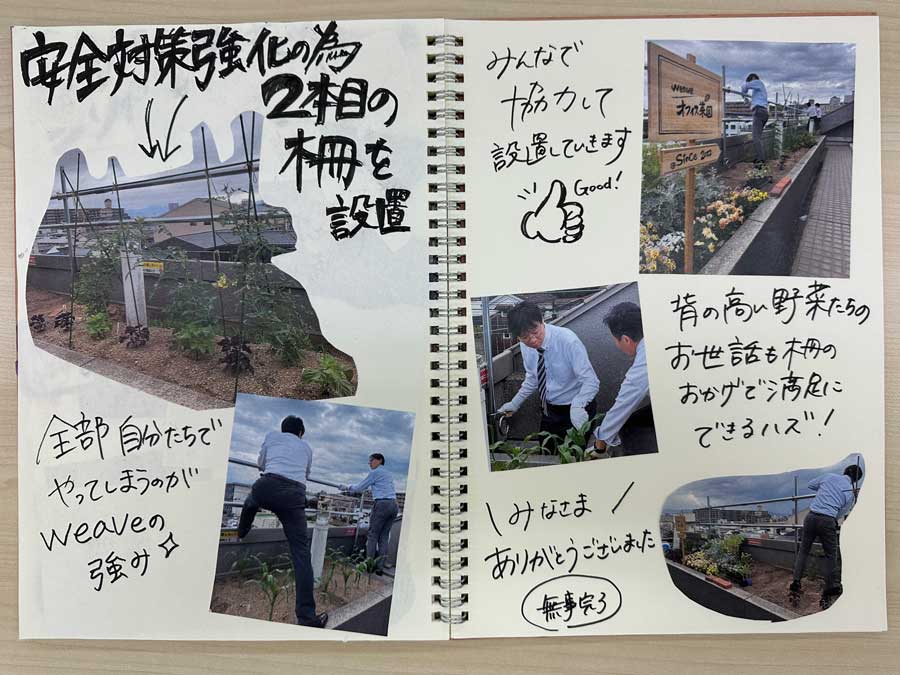 安全対策強化の為
2本目の
柵を
設置
全部自分たちで
やってしまうのが
weaveの
強み
みんなで
協力して
設置していきます
Good!
weave
オフィス菜園
背の高い野菜たちの
お世話も柵の
おかげで満足に
できるハズ！
\ みなさま /
ありがとうございました
無事完了